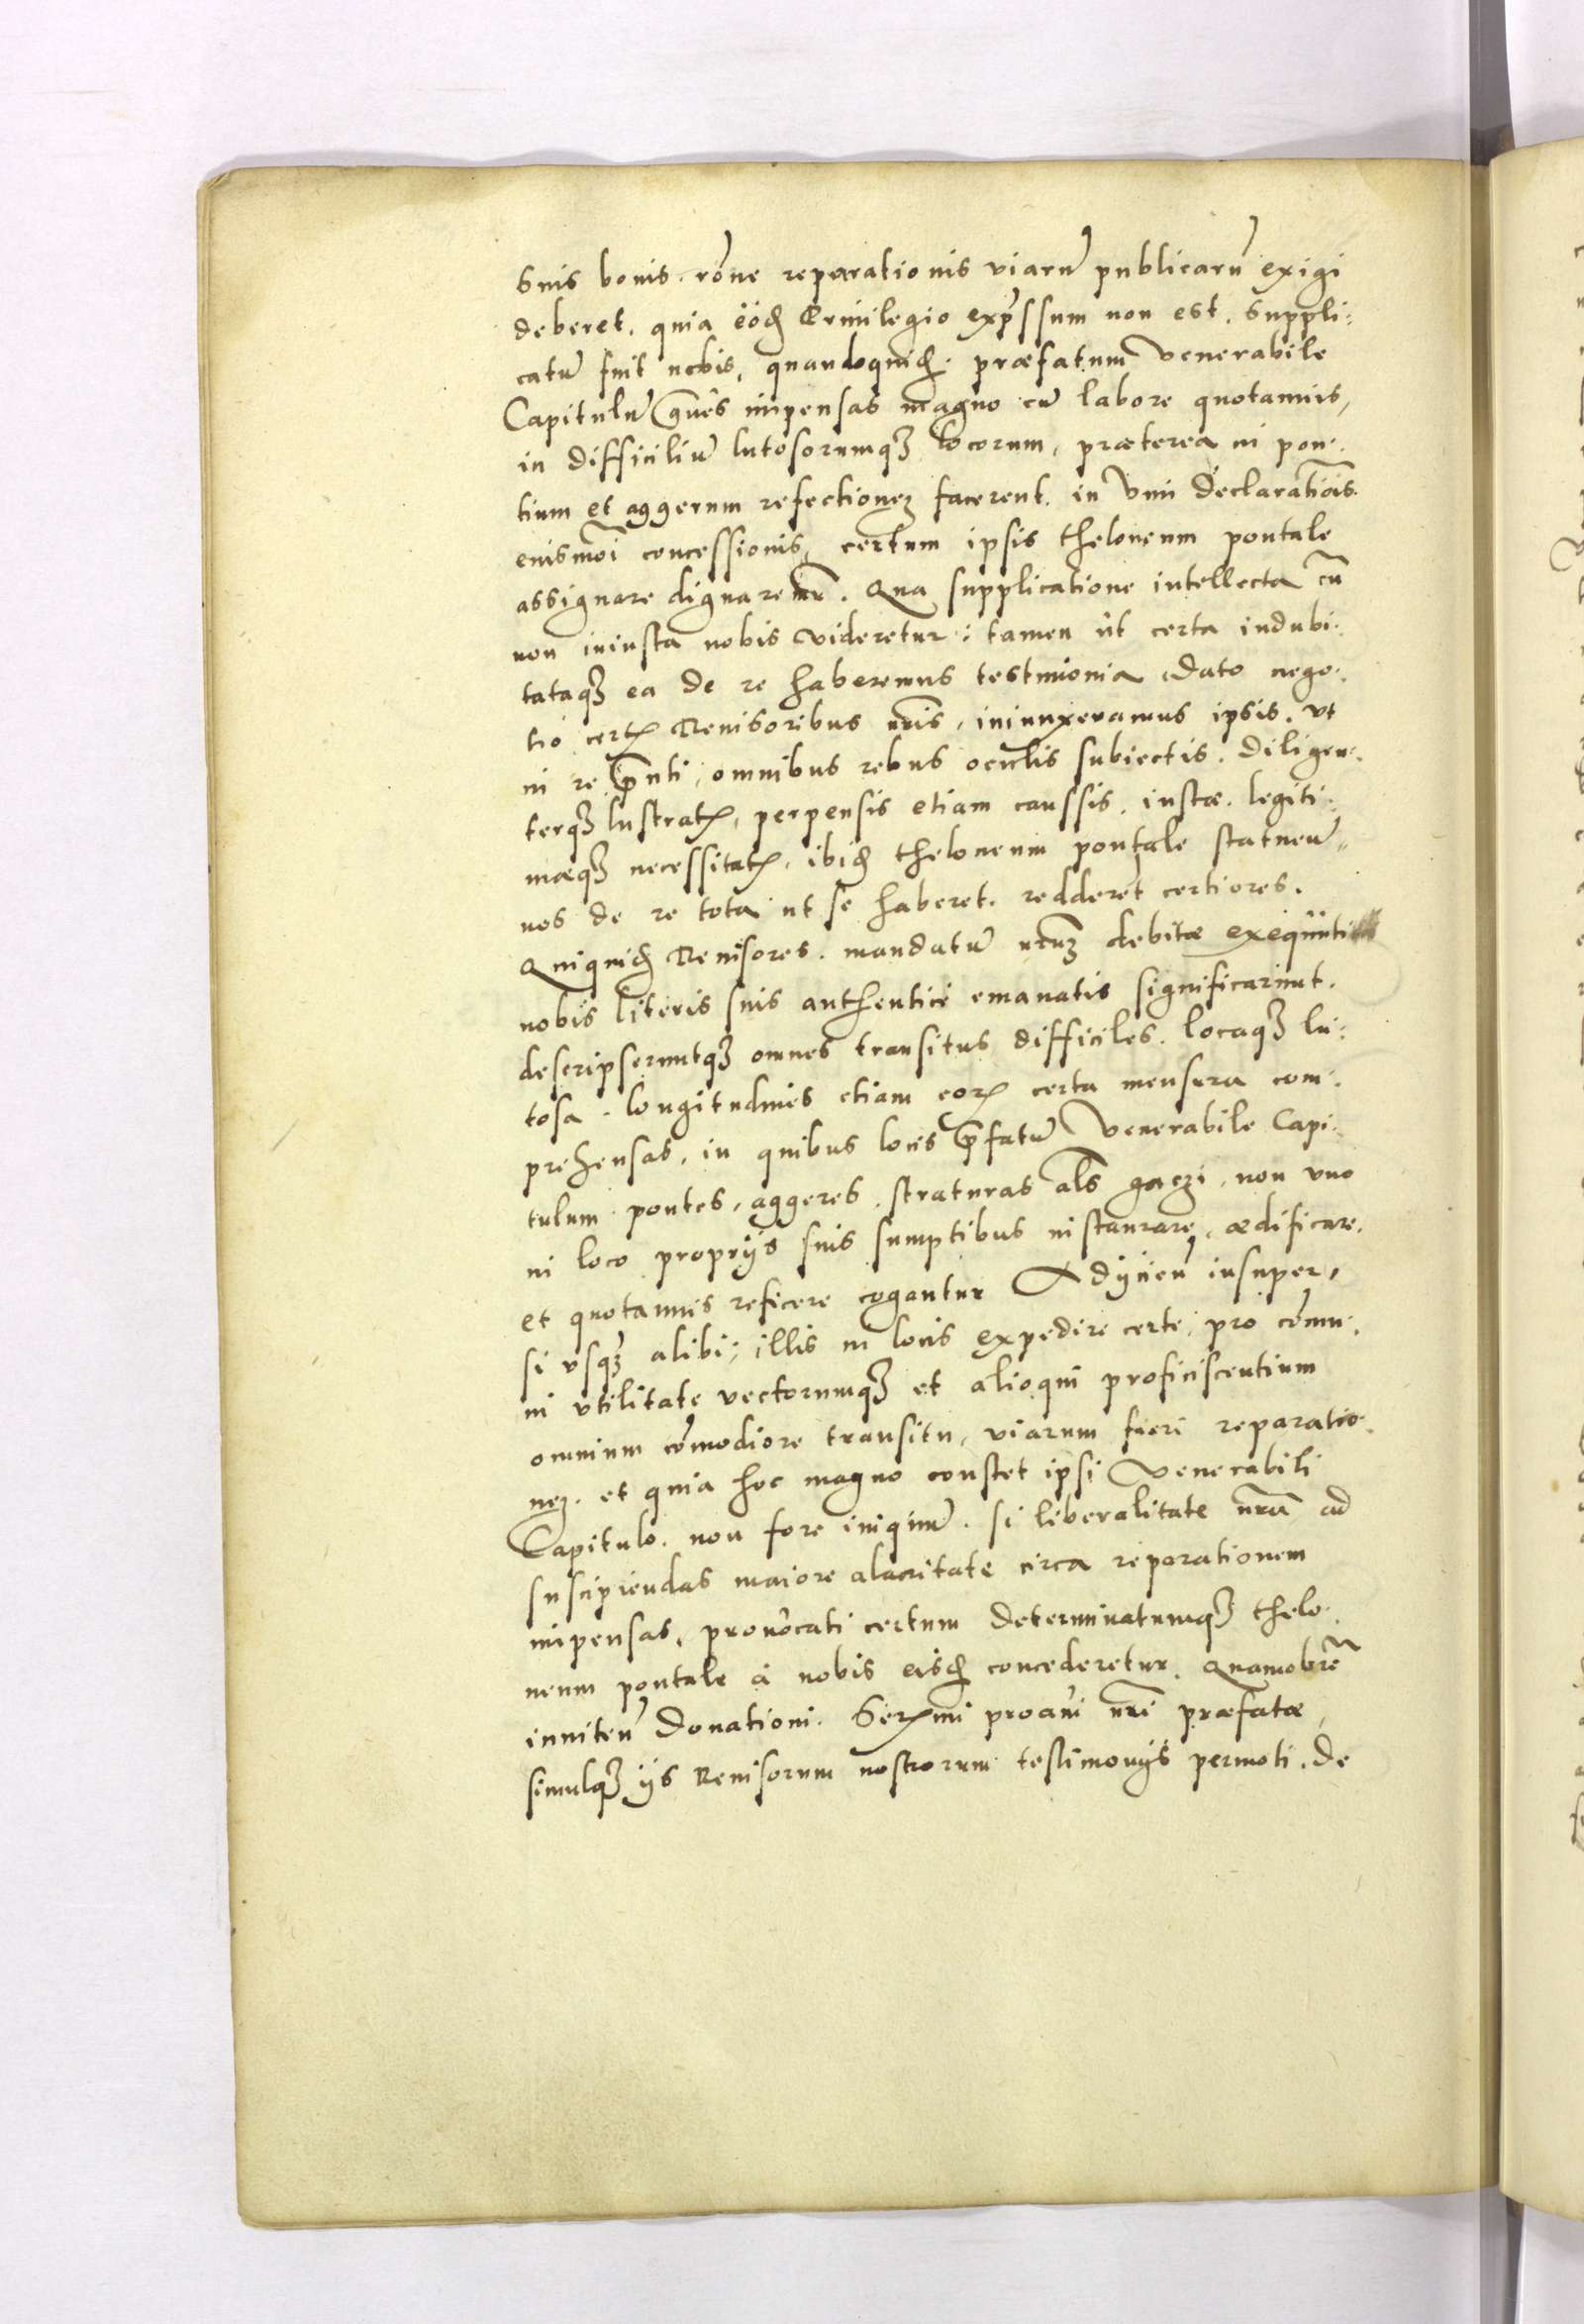 suis bonis. rõne reparationis viarũ publicarũ exigi
deberet. quia eod̃ Priuilegio exp̃ssum non est. Suppli:
catũ fuit nobis, quandoquid̃. præfatum Venerabile
Capitulũ grũes impensas magno cũ labore quotannis,
in difficiliũ lutosorumqȝ locorum, præterea in pon:
tium et aggerum refectioneȝ facerent. in Vim declarationis
eiusmõi concessionis, certum ipsis theloneum pontale
assignare dignaremr̃. Qua supplicatione intellecta cũ
non iniusta nobis videretur: tamen ut certa indubi:
tataqȝ ea de re haberemus testimonia, dato nego:
tio certꝭ Reuisoribus nr̃is, iniunxeramus ipsis. vt
in re p̃nti, omnibus rebus oculis subiectis. diligen:
terqȝ lustratꝭ, perpensis etiam caussis. iustæ. legiti:
mæqȝ necessitatꝭ, ibid̃ theloneum pontale statuen̄,,
nos de re tota ut se haberet. redderet certiores.
Quiquid̃ Reuisores. mandatũ nr̃uȝ debitæ exequũti
nobis literis suis authentice emanatis significarunt.
descripseruntqȝ omnes transitus difficiles. locaqȝ lu:
tosa. longitudines etiam eorꝭ certa mensura com:
prehensas, in quibus locis p̃fatũ Venerabile Capi:
tulum pontes, aggeres. straturas als̃ gaczi. non vno
in loco proprijs suis sumptibus instaurare, ædificare.
et quotannis reficere cogantur Adijcien̄ insuper,
si vsqȝ alibi, illis in locis expedire certe, pro cõmu:
ni vtilitate vectorumqȝ et alioqui proficiscentium
omnium cõmodiore transitu, viarum fieri reparatio:
neȝ. et quia hoc magno constet ipsi Venerabili
Capitulo. non fore iniquũ. si liberalitate nr̃a ad
suscipiendas maiore alacritate circa reparationem
impensas, prouocati certum determinatumqȝ thelo:
neum pontale à nobis eisd̃ concederetur. Quamobrẽ
inniten̄ donationi. Serꝭmi proaui nr̃i præfatæ,
simulqȝ ijs Reuisorum nostrorum testimonijs permoti. de